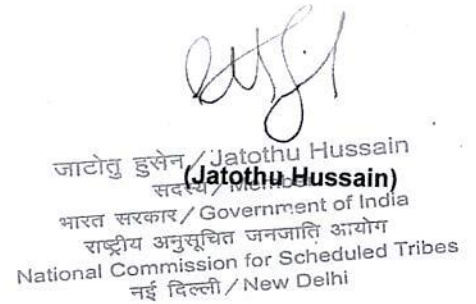 जाटोतु हुसेन / Jatothu Hussain
(Jatothu Hussain)
सदस्य / Member
भारत सरकार / Government of India
राष्ट्रीय अनुसूचित जनजाति आयोग
National Commission for Scheduled Tribes
नई दिल्ली / New Delhi